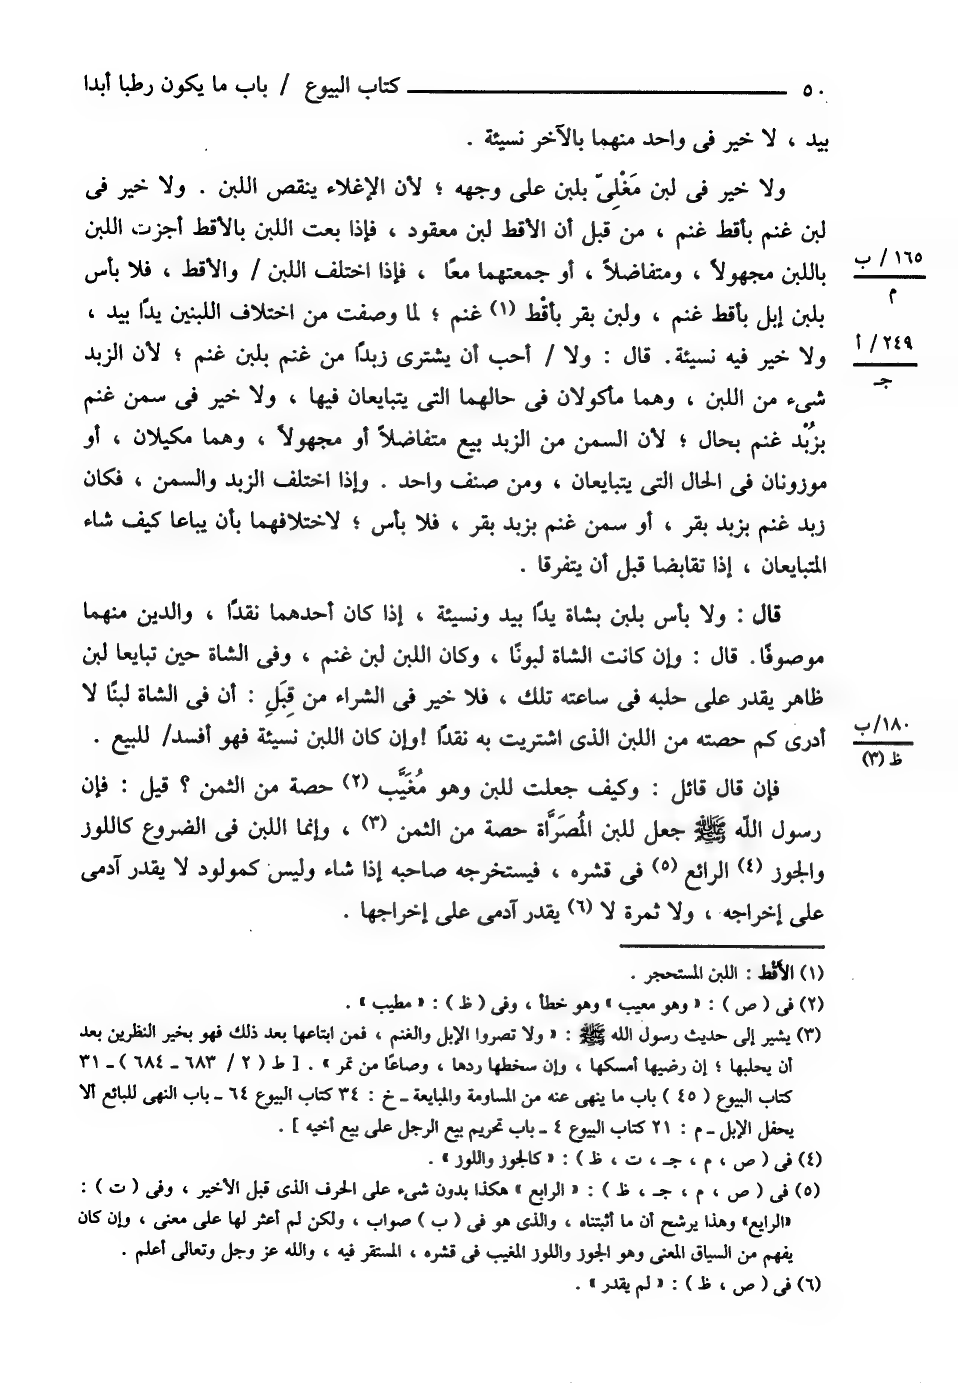 ٥٠ كتاب البيوع / باب ما يكون رطبا أبدا
بيد ، لا خير فى واحد منهما بالآخر نسيئة .
ولا خير فى لبن مَغْلِىّ بلبن على وجهه ؛ لأن الإغلاء ينقص اللبن . ولا خير فى
لبن غنم بأقط غنم ، من قبل أن الأقط لبن معقود ، فإذا بعت اللبن بالأقط أجزت اللبن
باللبن مجهولاً ، ومتفاضلاً ، أو جمعتهما معًا ، فإذا اختلف اللبن / والأقط ، فلا بأس
١٦٥ / ب
م
بلبن إبل بأقط غنم ، ولبن بقر بأقْط (١) غنم ؛ لما وصفت من اختلاف اللبنين يدًا بيد ،
ولا خير فيه نسيئة. قال : ولا / أحب أن يشترى زبدًا من غنم بلبن غنم ؛ لأن الزبد
٢٤٩ / أ
جـ
شىء من اللبن ، وهما مأكولان فى حالهما التى يتبايعان فيها ، ولا خير فى سمن غنم
بزُبْد غنم بحال ؛ لأن السمن من الزبد بيع متفاضلاً أو مجهولاً ، وهما مكيلان ، أو
موزونان فى الحال التى يتبايعان ، ومن صنف واحد . وإذا اختلف الزبد والسمن ، فكان
زبد غنم بزبد بقر ، أو سمن غنم بزبد بقر ، فلا بأس ؛ لاختلافهما بأن يباعا كيف شاء
المتبايعان ، إذا تقابضا قبل أن يتفرقا .
قال : ولا بأس بلبن بشاة يدًا بيد ونسيئة ، إذا كان أحدهما نقدًا ، والدين منهما
موصوفًا. قال : وإن كانت الشاة لبونًا ، وكان اللبن لبن غنم ، وفى الشاة حين تبايعا لبن
ظاهر يقدر على حلبه فى ساعته تلك ، فلا خير فى الشراء من قِبَلِ : أن فى الشاة لبنًا لا
أدرى كم حصته من اللبن الذى اشتريت به نقدًا !وإن كان اللبن نسيئة فهو أفسد/ للبيع .
١٨٠/ب
ظ (٣)
فإن قال قائل : وكيف جعلت للبن وهو مُغَيَّب (٢) حصة من الثمن ؟ قيل : فإن
رسول الله ﷺ جعل للبن المُصَرَّاة حصة من الثمن (٣) ، وإنما اللبن فى الضروع كاللوز
والجوز (٤) الرائع (٥) فى قشره ، فيستخرجه صاحبه إذا شاء وليس كمولود لا يقدر آدمى
على إخراجه ، ولا ثمرة لا (٦) يقدر آدمى على إخراجها .
(١) الأَقْط : اللبن المستحجر .
(٢) فى ( ص ) : « وهو معيب » وهو خطأ ، وفى ( ظ ) : « مطيب » .
(٣) يشير إلى حديث رسول الله ﷺ : « ولا تصروا الإبل والغنم ، فمن ابتاعها بعد ذلك فهو بخير النظرين بعد
أن يحلبها ؛ إن رضيها أمسكها ، وإن سخطها ردها ، وصاعًا من تمر » . [ ط ( ٢ / ٦٨٣ ـ ٦٨٤ ) ـ ٣١
كتاب البيوع ( ٤٥ ) باب ما ينهى عنه من المساومة والمبايعة ـ خ : ٣٤ كتاب البيوع ٦٤ ـ باب النهى للبائع ألا
يحفل الإبل ـ م : ٢١ كتاب البيوع ٤ ـ باب تحريم بيع الرجل على بيع أخيه ] .
(٤) فى ( ص ، م ، جـ ، ت ، ظ ) : « كالجوز واللوز » .
(٥) فى ( ص ، م ، جـ ، ظ ) : « الرابع » هكذا بدون شىء على الحرف الذى قبل الأخير ، وفى ( ت ) :
«الرايع» وهذا يرشح أن ما أثبتناه ، والذى هو فى ( ب ) صواب ، ولكن لم أعثر لها على معنى ، وإن كان
يفهم من السياق المعنى وهو الجوز واللوز المغيب فى قشره ، المستقر فيه ، والله عز وجل وتعالى أعلم .
(٦) فى ( ص ، ظ ) : « لم يقدر » .